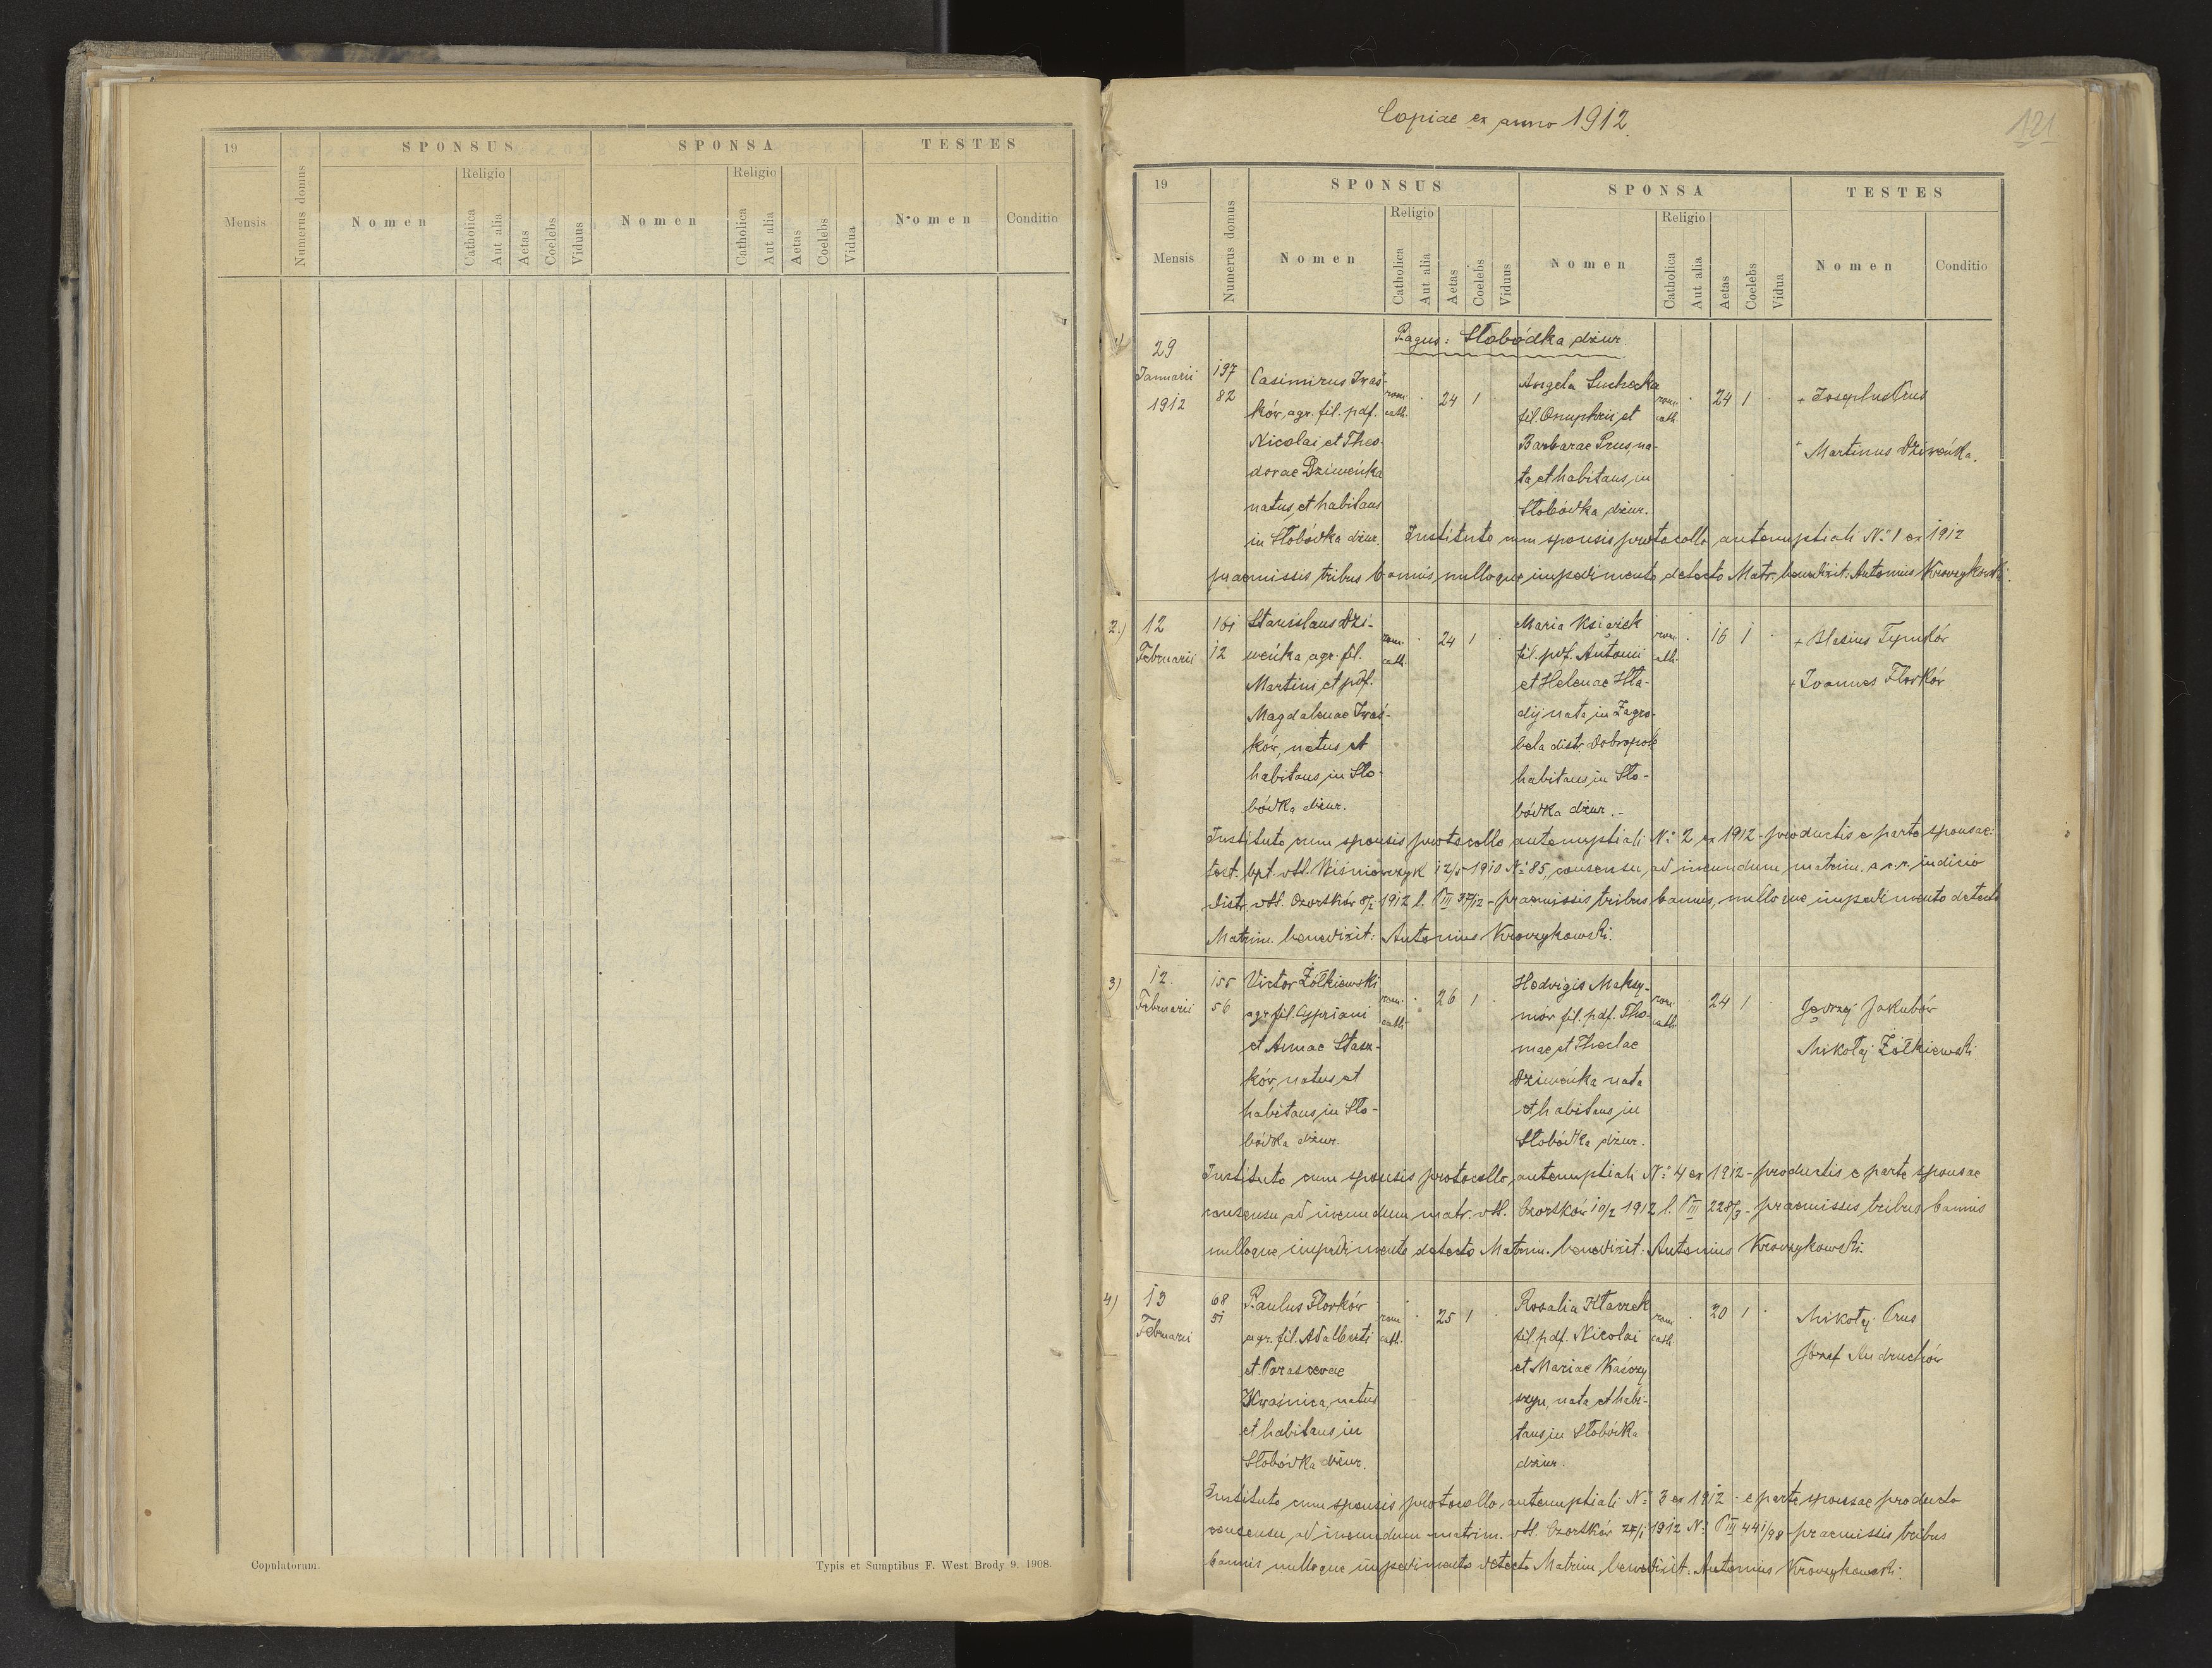 19
SPONSUS
SPONSA
TESTES
Mensis
Numerus domus
Nomen
Religio
Catholica
Aut alia
Aetas
Coelebs
Viduus
Nomen
Religio
Catholica
Aut alia
Aetas
Coelebs
Vidua
Nomen
Conditio
Copulatorum.
Typis et Sumptibus F. West Brody 9. 1908.
Copiae ex anno 1912.
121
19
SPONSUS
SPONSA
TESTES
Mensis
Numerus domus
Nomen
Religio
Catholica
Aut alia
Aetas
Coelebs
Viduus
Nomen
Religio
Catholica
Aut alia
Aetas
Coelebs
Vidua
Nomen
Conditio
Pagus: Słobódka dżur.
1)
29
Januarii
1912
197
82
Casimirus Iwaś-
ków, agr. fil. pdf.
Nicolai et Theo-
dorae Dziweńka
natus et habitans
in Słobódka dżur.
rom.
cath.
24
1
Angela Suchecka
fil. Onuphrii et
Barbarae Prus, na-
ta et habitans in
Słobódka dżur.
rom.
cath.
24
1
+ Josephus Prus
+ Martinus Dziweńka.
Instituto cum sponsis protocollo antenuptiali N: 1 ex 1912
praemissis tribus bannis nulloque impedimento detecto Matr. benedixit: Antonius Krovzykowski.
2.)
12
Februarii
161
12
Stanislaus Dzi-
weńka agr. fil.
Martini et pdf.
Magdalenae Iwaś-
ków, natus et
habitans in Sło-
bódka dżur.
rom.
cath.
24
1
Maria Książek
fil. pdf. Antonii
et Helenae Hła-
dij nata in Zagro-
bela distr. Dobropole
habitans in Sło-
bódka dżur. -
rom.
cath.
16
1
+ Blasius Tymków
+ Joannes Florków
Instituto cum sponsis protocollo antenuptiali N: 2 ex 1912 - productis e parte sponsae:
test. bpt. dtt. Wiśniowczyk 12/5 1910 N: 85, consensu ad ineundum matrim. a c.r. iudicio
distr. dtt. Czortków 8/2 1912 l. P III 37/12 - praemissis tribus bannis, nulloque impedimento detecto
Matrim. benedixit: Antonius Krovzykowski.
3)
12.
Februarii
155
56
Victor Żółkiewski
agr. fil. Cypriani
et Annae Stasz-
ków, natus et
habitans in Sło-
bódka dżur.
rom.
cath
26
1
Hedvigis Maksy-
mów fil. pdf. Tho-
mae et Theclae
Dziweńka nata
et habitans in
Słobódka dżur.
rom.
cath
24
1
Jędrzej Jakubów
Mikołaj Żółkiewski.
Instituto cum sponsis protocollo antenuptiali N: 4 ex 1912 - productis e parte sponsae
consensu ad ineundum matr. dtt. Czortków 10/2 1912 l. P III 228/3 - praemissis tribus bannis
nulloque impedimento detecto Matrim. benedixit: Antonius Krovzykowski.
4)
13
Februarii
68
51
Paulus Florków
agr. fil. Adalberti
et Parascevae
Kwaśnica, natus
et habitans in
Słobódka dżur.
rom
cath.
25
1
Rosalia Kłaczek
fil. pdf. Nicolai
et Mariae Kaśczy
szyn, nata et habi-
tans in Słobódka
dżur.
rom
cath.
20
1
Mikołaj Prus
Józef Andruchów
Instituto cum sponsis protocollo antenuptiali N: 3 ex 1912 - e parte sponsae producto
consensu ad ineundum matrim. dtt. Czortków 27/1 1912 N: P III 441/98 praemissis tribus
bannis nulloque impedimento detecto Matrim. benedixit: Antonius Krovzykowski.